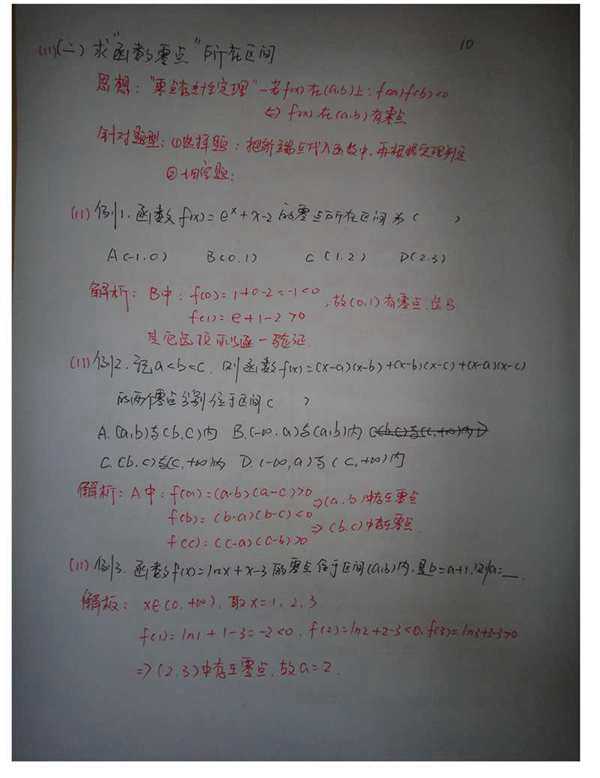 10
(11)(二) 求“函数零点”所在区间
思想:“零点存在性定理”—若f(x)在(a,b)上:f(a)f(b)<0
⇔ f(x)在(a,b)有零点
针对题型:①选择题:把新端点代入函数中,再根据定理判定
②填空题:
(11) 例1. 函数f(x)=eˣ+x-2的零点所在区间为( )
A(-1,0) B(0,1) C(1,2) D(2,3)
解析:B中:f(0)=1+0-2=-1<0
f(1)=e+1-2>0 ,故(0,1)有零点,选B
其它选项可以逐一验证.
(11) 例2. 记a<b<c. 则函数f(x)=(x-a)(x-b)+(x-b)(x-c)+(x-a)(x-c)
的两个零点分别位于区间( )
A.(a,b)与(b,c)内 B.(-∞,a)与(a,b)内
C.(b,c)与(c,+∞)内 D.(-∞,a)与(c,+∞)内
解析:A中:f(a)=(a-b)(a-c)>0 ⇒(a,b)中存在零点
f(b)=(b-a)(b-c)<0 ⇒(b,c)中存在零点.
f(c)=(c-a)(c-b)>0
(11) 例3. 函数f(x)=lnx+x-3的零点位于区间(a,b)内,且b=a+1,则a=__.
解析:x∈(0,+∞),取x=1,2,3
f(1)=ln1+1-3=-2<0,f(2)=ln2+2-3<0,f(3)=ln3+3-3>0
⇒(2,3)中存在零点,故a=2.